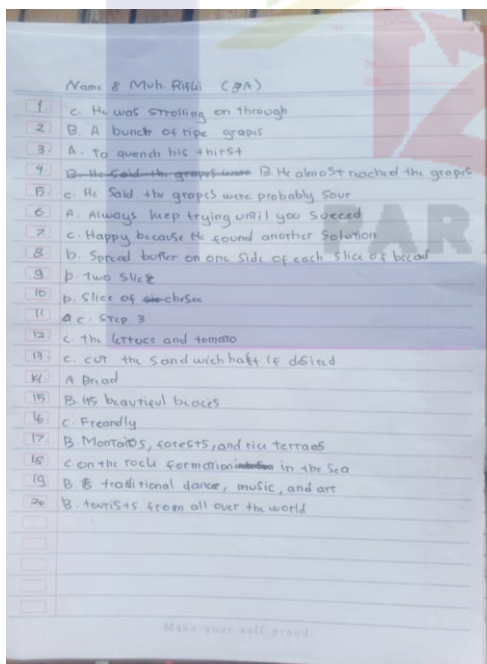 Name : Muh. Rifki (9A)
1 c. He was strolling on through
2 B. A bunch of ripe grapis
3 A. To quench his thirst
4. B. He said the grapes were B. He almost reached the grapes
5 c. He said the grapes were probably sour
6 A. Always keep trying until you succed
7 c. Happy because He found another solution
8 b. Spread butter on one side of each slice of bread
9 b. two slice
10 b. Slice of chesee
11 c. Step 3
12 c. the lettuce and tomato
13. c. cut the sandwich haft if dsired
14. A Bread
15 B. its beautiful beaces
16 c. Freandly
17 B. Montaios, forests, and rice terraes
18 c. on the rock formation in the sea
19 B. traditional dance, music, and art
20 B. tourists from all over the world
Make your self proud